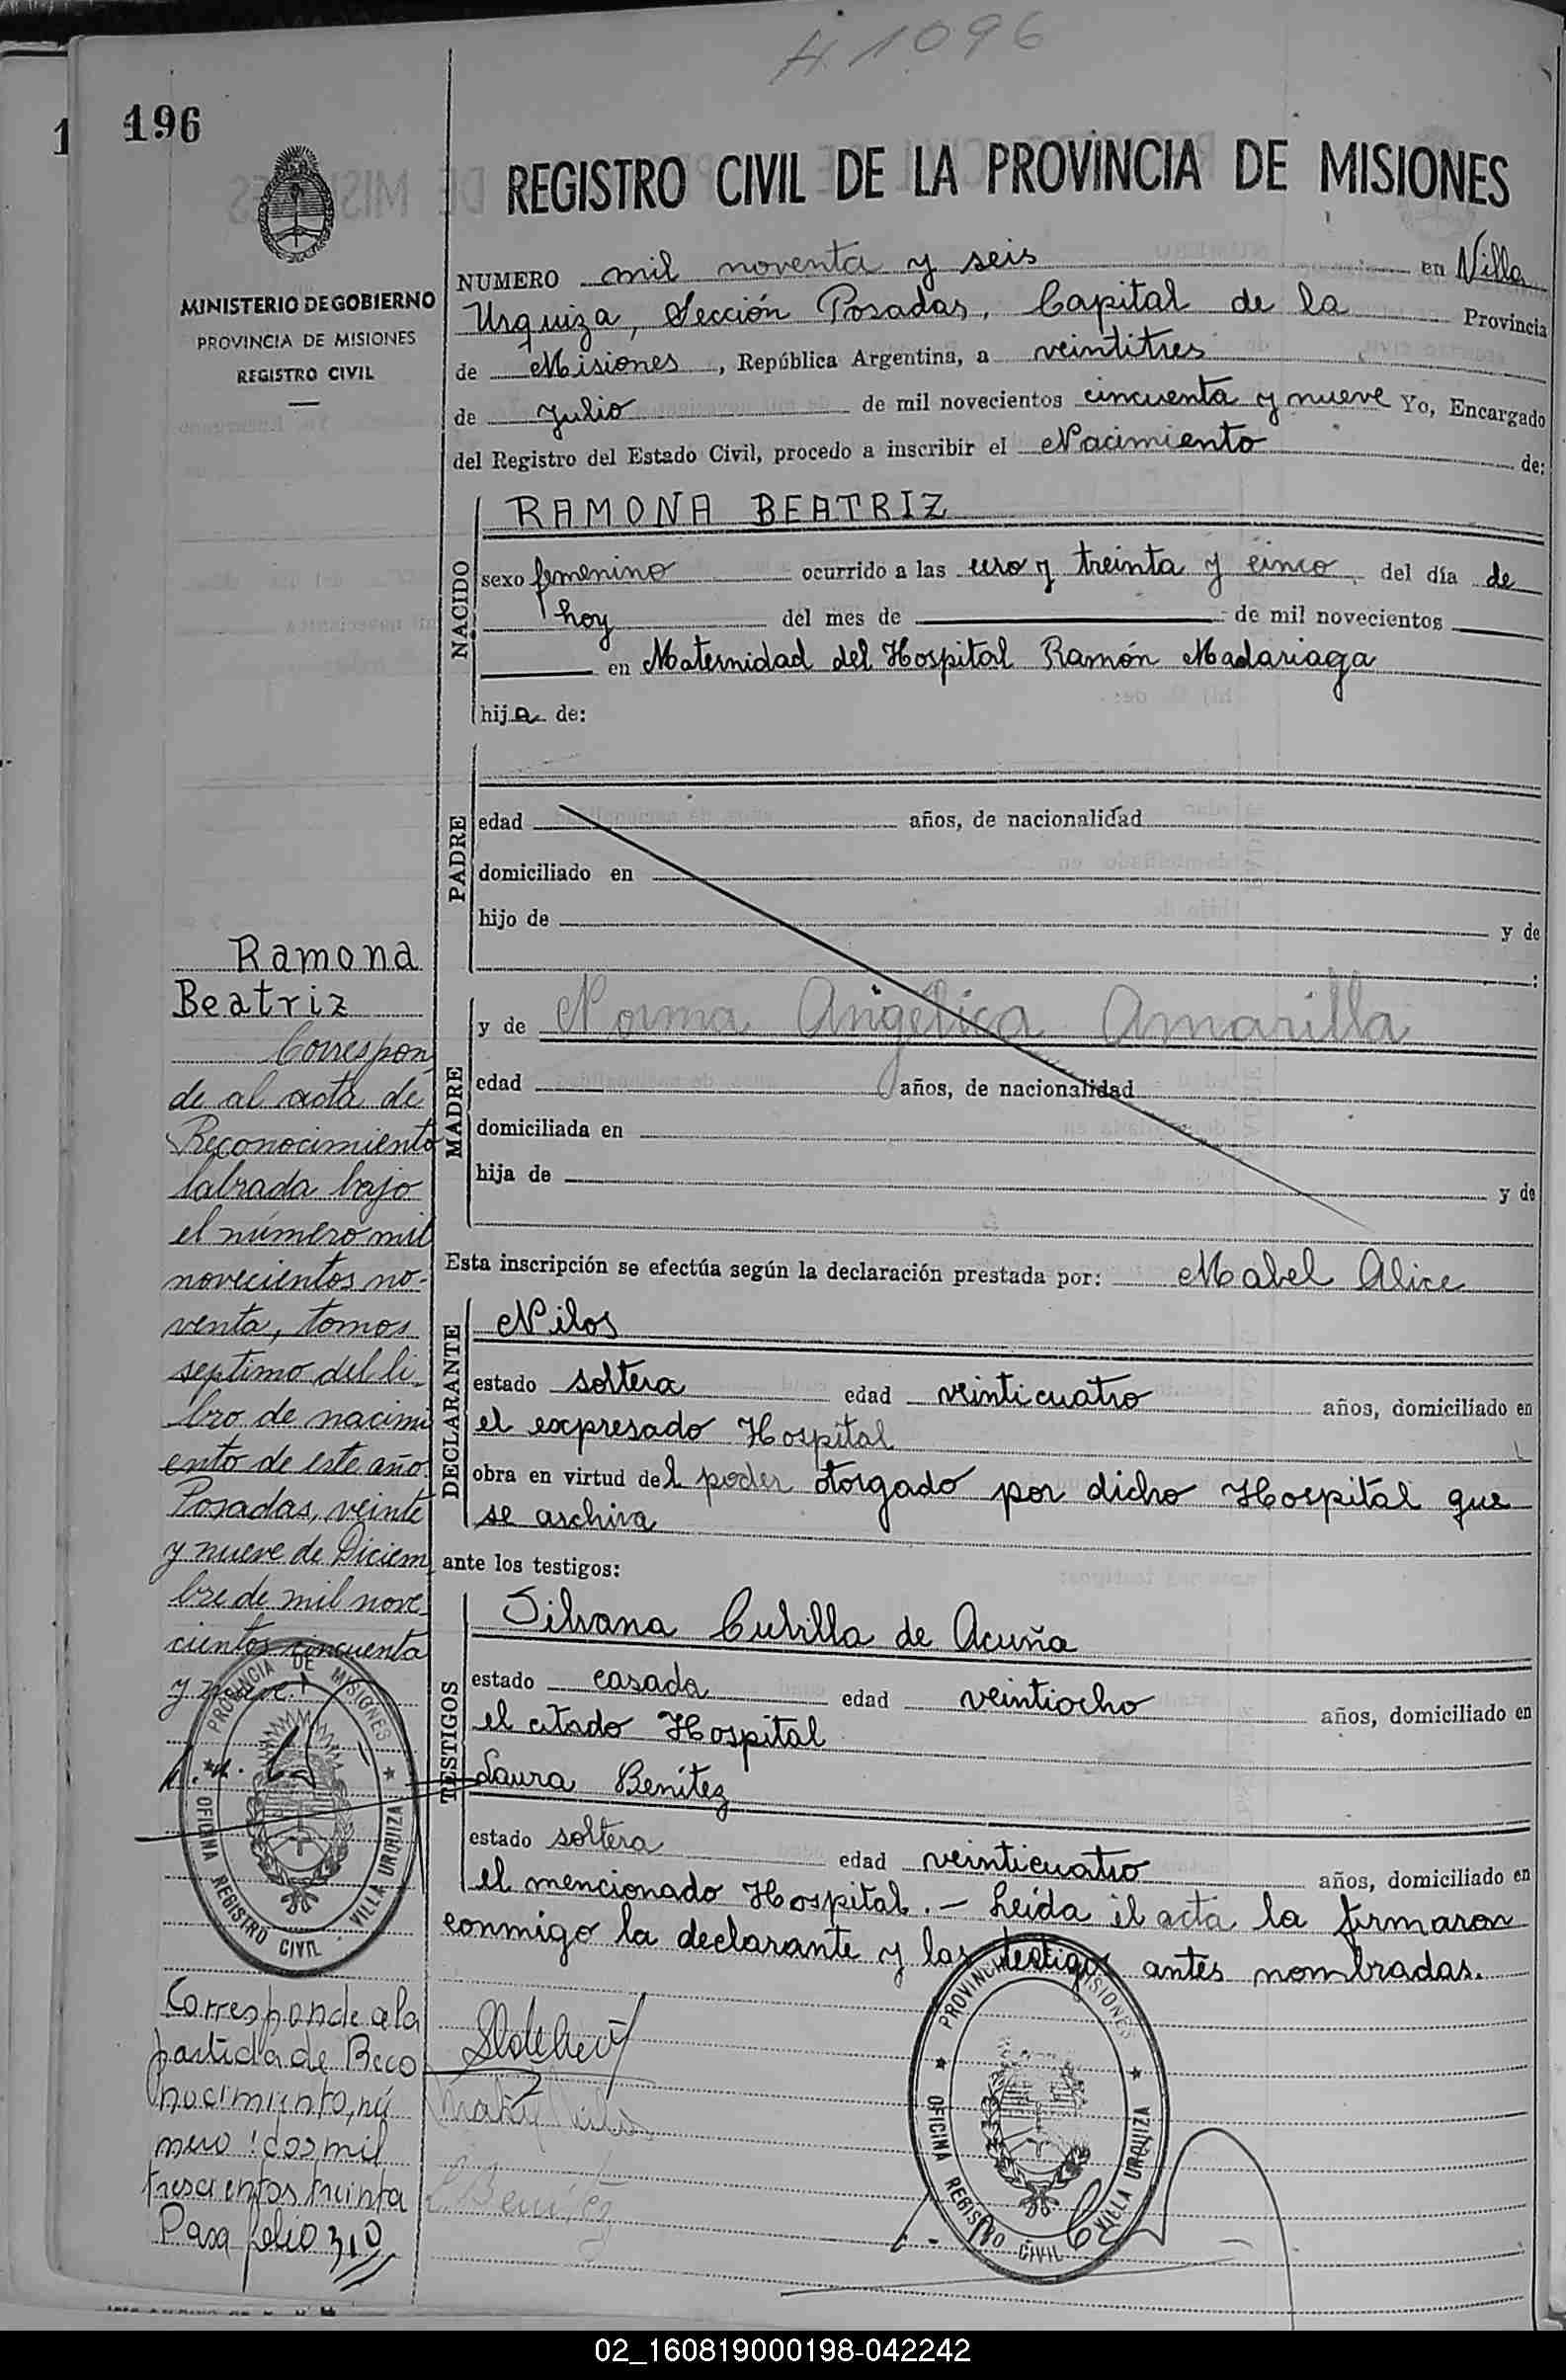 H 1096
196
REGISTRO CIVIL DE LA PROVINCIA DE MISIONES
MINISTERIO DE GOBIERNO
PROVINCIA DE MISIONES
REGISTRO CIVIL
NUMERO mil noventa y seis en Villa
Urquiza, Sección Posadas, Capital de la Provincia
de Misiones, República Argentina, a veintitres
de Julio de mil novecientos cincuenta y nueve Yo, Encargado
del Registro del Estado Civil, procedo a inscribir el Nacimiento de:
NACIDO
RAMONA BEATRIZ
sexo femenino ocurrido a las uno y treinta y cinco del día de
hoy del mes de de mil novecientos
en Maternidad del Hospital Ramón Madariaga
hija de:
PADRE
edad años, de nacionalidad
domiciliado en
hijo de y de
:
MADRE
y de Norma Angélica Amarilla
edad años, de nacionalidad
domiciliada en
hija de y de
Esta inscripción se efectúa según la declaración prestada por: Mabel Alice
DECLARANTE
Nilos
estado soltera edad veinticuatro años, domiciliado en
el expresado Hospital
obra en virtud del poder otorgado por dicho Hospital que
se archiva
ante los testigos:
TESTIGOS
Silvana Cubilla de Acuña
estado casada edad veintiocho años, domiciliado en
el citado Hospital
Laura Benítez
estado soltera edad veinticuatro años, domiciliado en
el mencionado Hospital.- Leída el acta la firmaron
conmigo la declarante y las testigos antes nombradas.
Ramona
Beatriz
Correspon
de al acta de
Reconocimiento
labrada bajo
el número mil
novecientos no-
venta, tomos
septimo del li-
bro de nacimi
ento de este año.
Posadas, veinte
y nueve de Diciem
bre de mil nove-
cientos cincuenta
y nueve.
PROVINCIA DE MISIONES
OFICINA REGISTRO CIVIL VILLA URQUIZA
Corresponde a la
partida de Reco
nocimiento, nú
mero: dos mil
trescientos treinta
Pasa folio 310
L Benítez
PROVINCIA MISIONES
OFICINA REGISTRO CIVIL VILLA URQUIZA
02_160819000198-042242